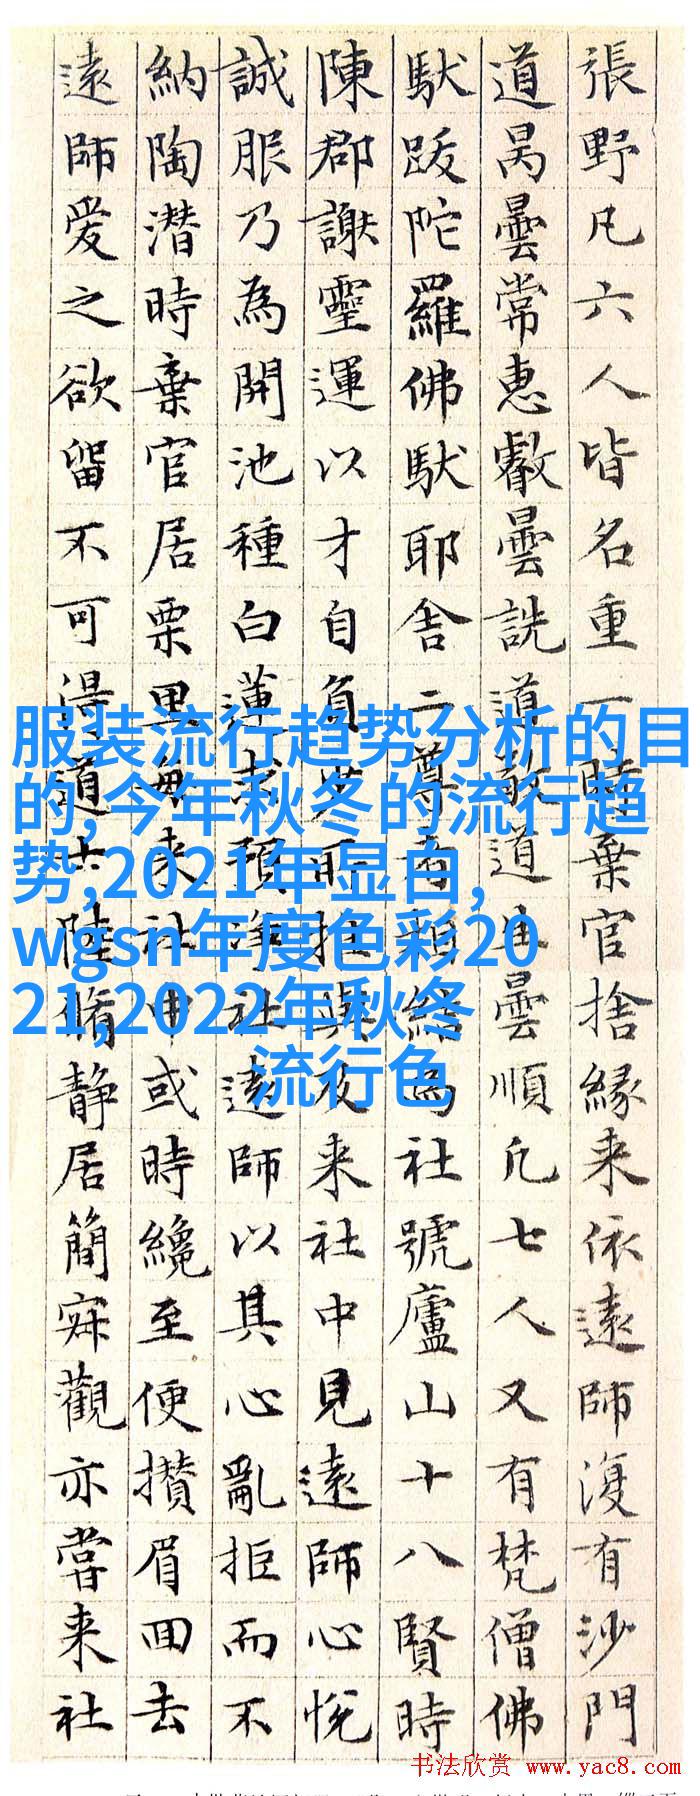 張野凡六人皆名重一時棄官捨縁来依遠師復有沙門
道昺曇常惠叡曇詵道敬道生曇順凡七人又有梵僧佛
馱跋陀羅佛馱耶舍二尊者預結為社號廬山十八賢時
陳郡謝靈運以才自負少所推與及来社中見遠師心悅
誠服乃為開池種白蓮求預淨社遠師以其心亂拒而不
納陶潜時棄官居栗里每来社中或時纔至便攢眉回去
遠師爱之欲留不可得道士陸脩静居簡寂觀亦嘗来社
服装流行趋势分析的目
的,今年秋冬的流行趋
势,2021年显白,
wgsn年度色彩20
21,2022年秋冬
流行色
书法欣赏 www.yac8.com